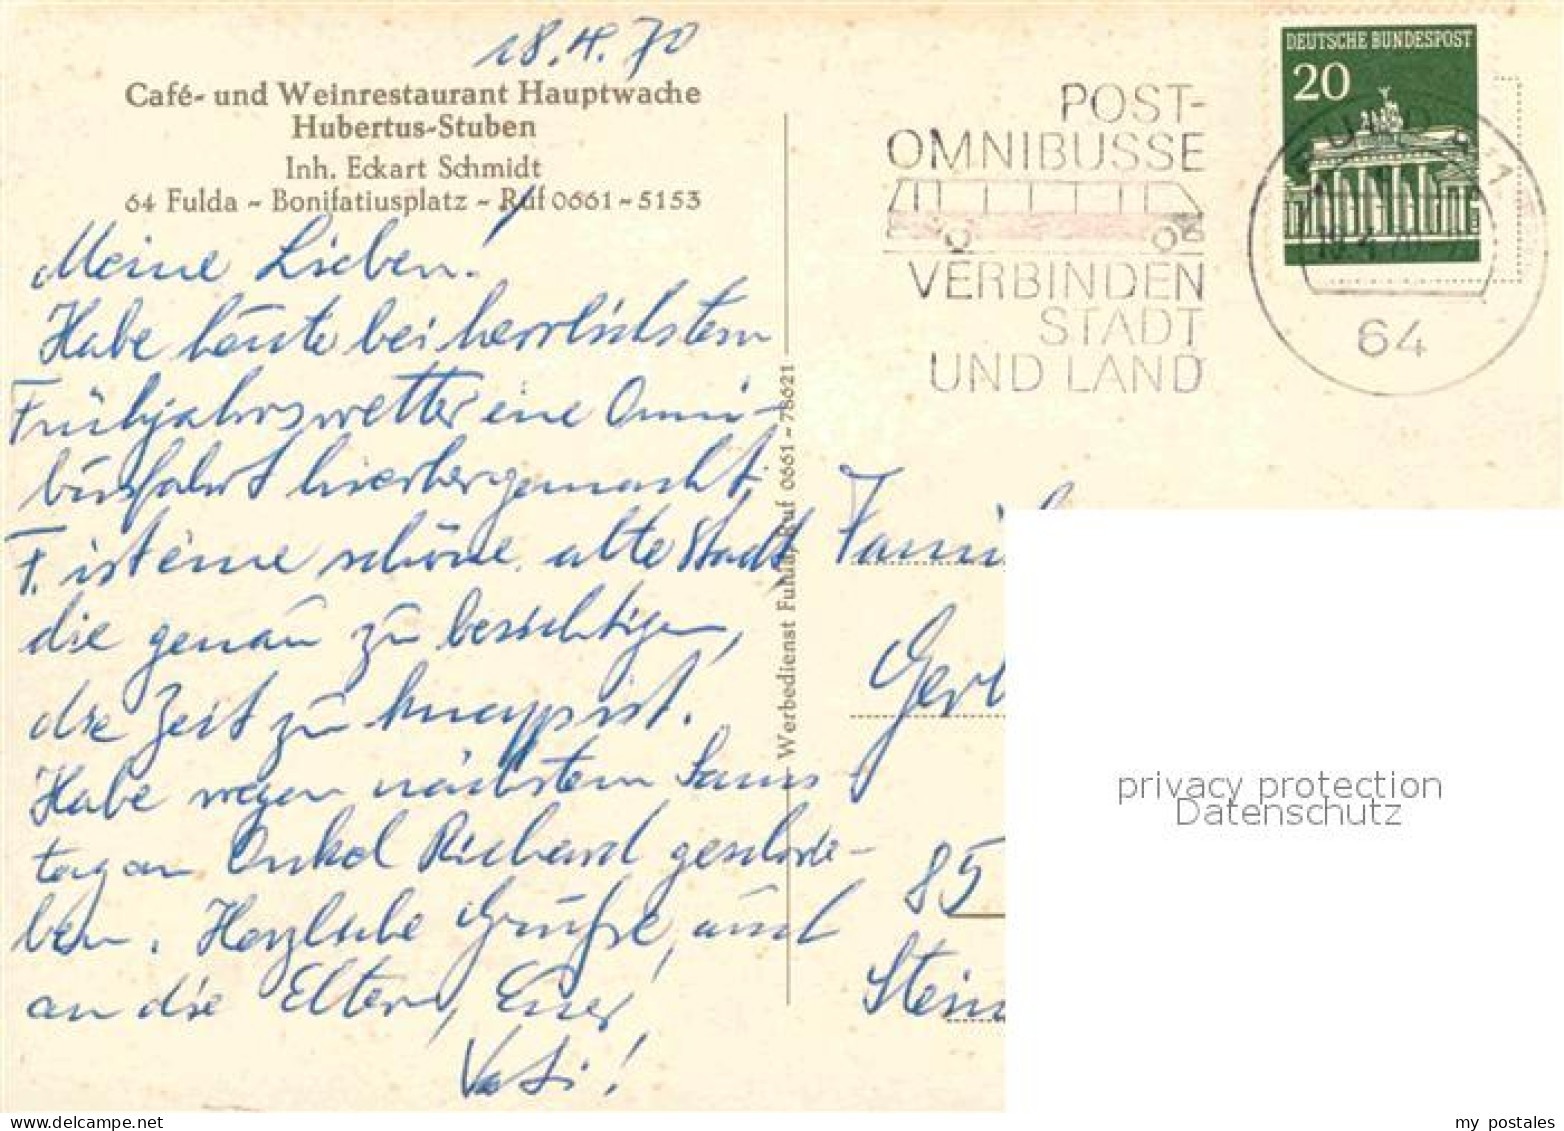 18.4.70
Café- und Weinrestaurant Hauptwache
Hubertus-Stuben
Inh. Eckart Schmidt
64 Fulda ~ Bonifatiusplatz ~ Ruf 0661~5153
Meine Lieben!
Habe heute bei herrlichstem
Frühjahrswetter eine Omni-
busfahrt hierher gemacht,
F. ist eine schöne alte Stadt
die genau zu besichtigen,
die Zeit zu knapp ist.
Habe wegen nächstem Sams
tag an Onkel Richard geschrie-
ben. Herzliche Grüße, auch
an die Eltern, Euer
Vati!
Werbedienst Fulda, Ruf 0661~78621
POST-
OMNIBUSSE
VERBINDEN
STADT
UND LAND
DEUTSCHE BUNDESPOST
20
64
Fami
Ger
85
Stein
privacy protection
Datenschutz
my postales